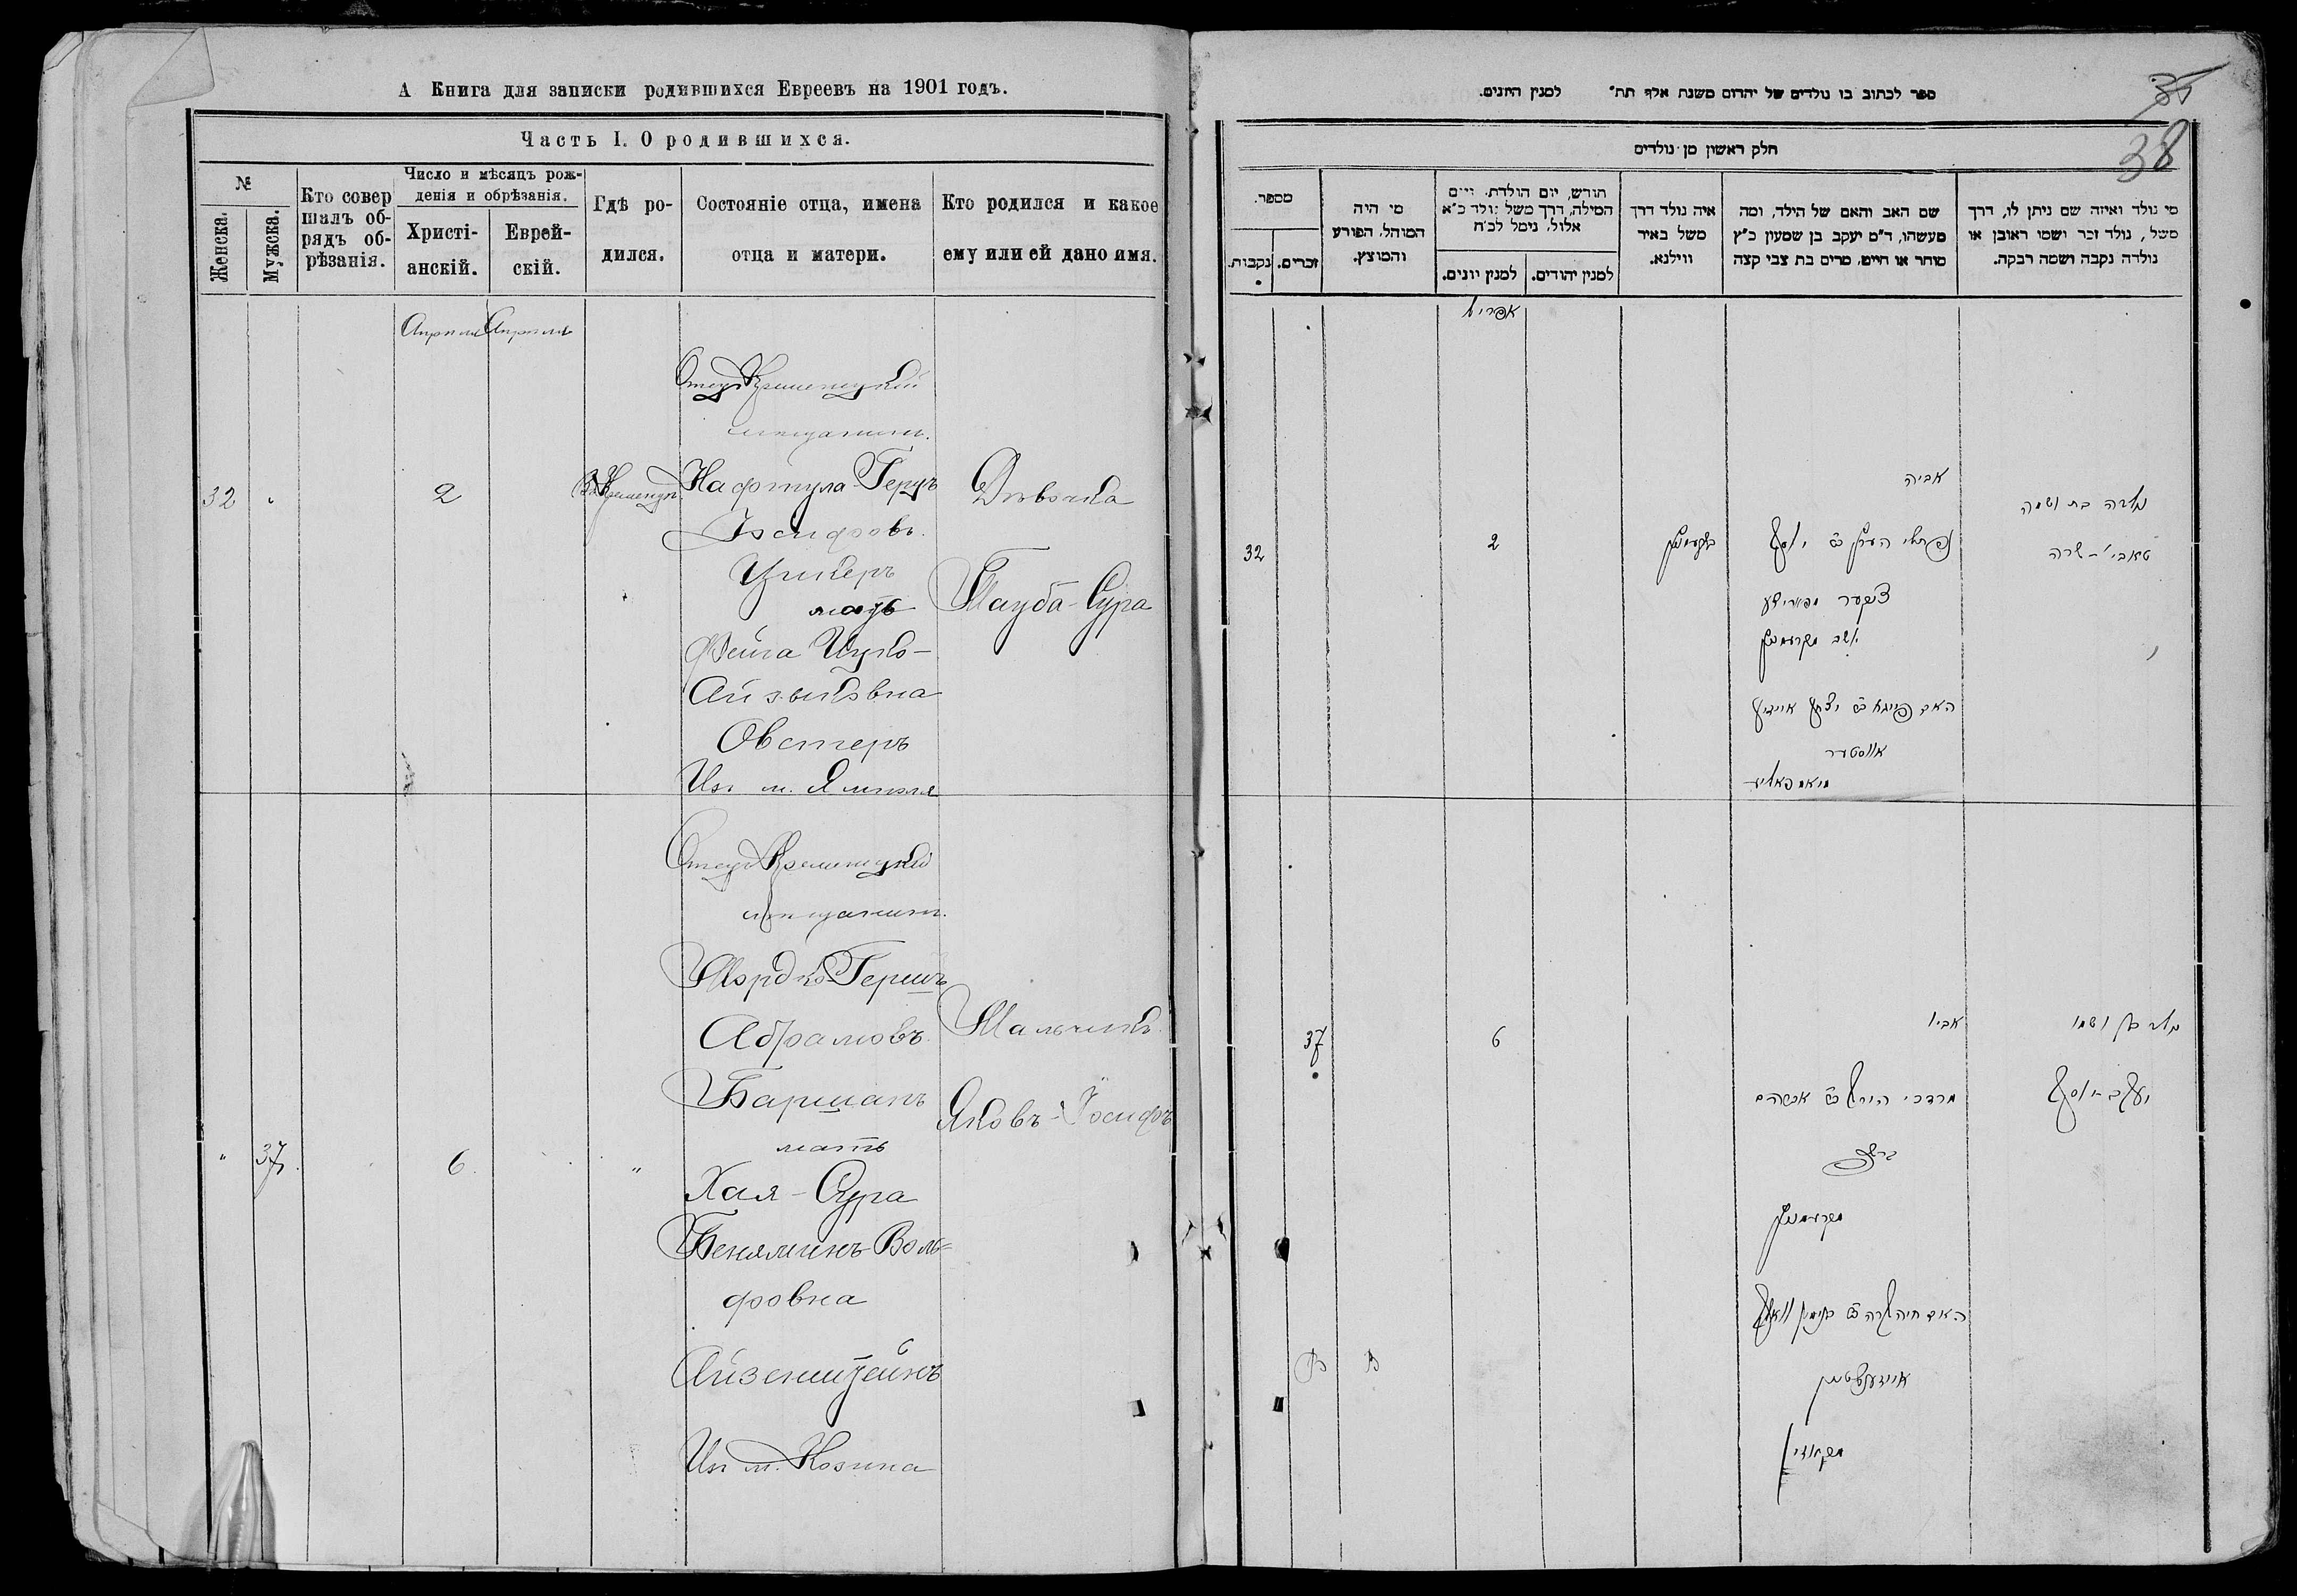 А Книга для записки родившихся Евреевъ на 1901 годъ.
Часть I. О родившихся.
№
Женска.
Мужска.
Кто совер
шалъ об-
рядъ об-
рѣзанія.
Число и мѣсяцъ рож-
денія и обрѣзанія.
Христі-
анскій.
Еврей-
скій.
Гдѣ ро-
дился.
Состояніе отца, имена
отца и матери.
Кто родился и какое
ему или ей дано имя.
Апрѣля
Отецъ Кременецкій
мѣщанинъ.
32
2
Нафтула-Герцъ
Іосифовъ
Цукеръ
мать
Фейга Ицко-
Айзыковна
Овстеръ
Изъ м. Ямполя
Дѣвочка
Тауба-Сура
Отецъ Кременецкій
мѣщанинъ.
"
37
6
"
Мордко-Гершъ
Абрамовъ
Баршакъ
мать
Хая-Сура
Беняминъ-Воль=
фовна
Айзенштейнъ
Изъ м. Козина
Мальчикъ
Яковъ-Іосифъ
35
38
ספר לכתוב בו נולדים של יהדום משנת אלף תת" למנין היונים.
חלק ראשון מן נולדים
מספר.
נקבות.
זכרים.
מי היה
המוהל, הפורע
והמוצץ.
חורש, יום הולדת, ויום
המילה, דרך משל נולד כ"א
אלול, נימל לכ"ח
למנין יונים.
למנין יהודים.
איה נולד דרך
משל באיר
ווילנא.
שם האב והאם של הילד, ומה
מעשהו, ד"מ יעקב בן שמעון כ"ץ
סוחר או חייט, מרים בת צבי קצה
מי נולד ואיזה שם ניתן לו, דרך
משל, נולד זכר ושמו ראובן או
נולדה נקבה ושמה רבקה.
אפריל
32
2
אביה
נפתלי הערץ ב"ר יוסף
אווסטער
נולדה בת ושמה
טאובי-שרה
37
6
אביו
מרדכי הירש ב"ר אברהם
נולד בן ושמו
יעקב-יוסף